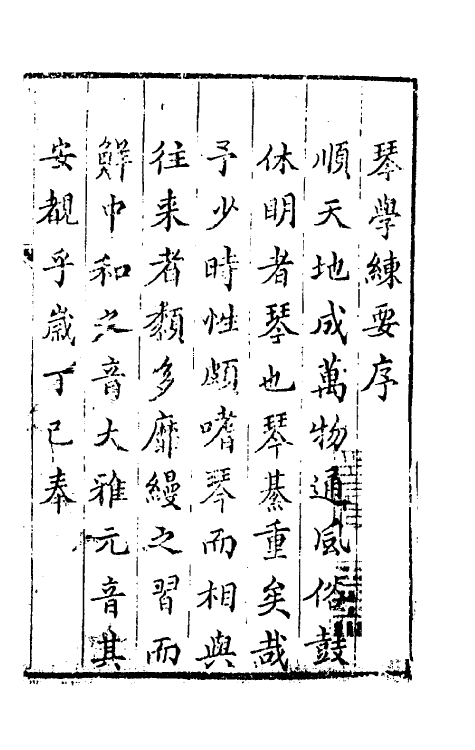 琴學練要序
順天地成萬物通風俗鼓
休明者琴也琴綦重矣哉
予少時性頗嗜琴而相與
往来者類多靡縵之習而
鮮中和之音大雅元音其
安覩乎嵗丁已奉